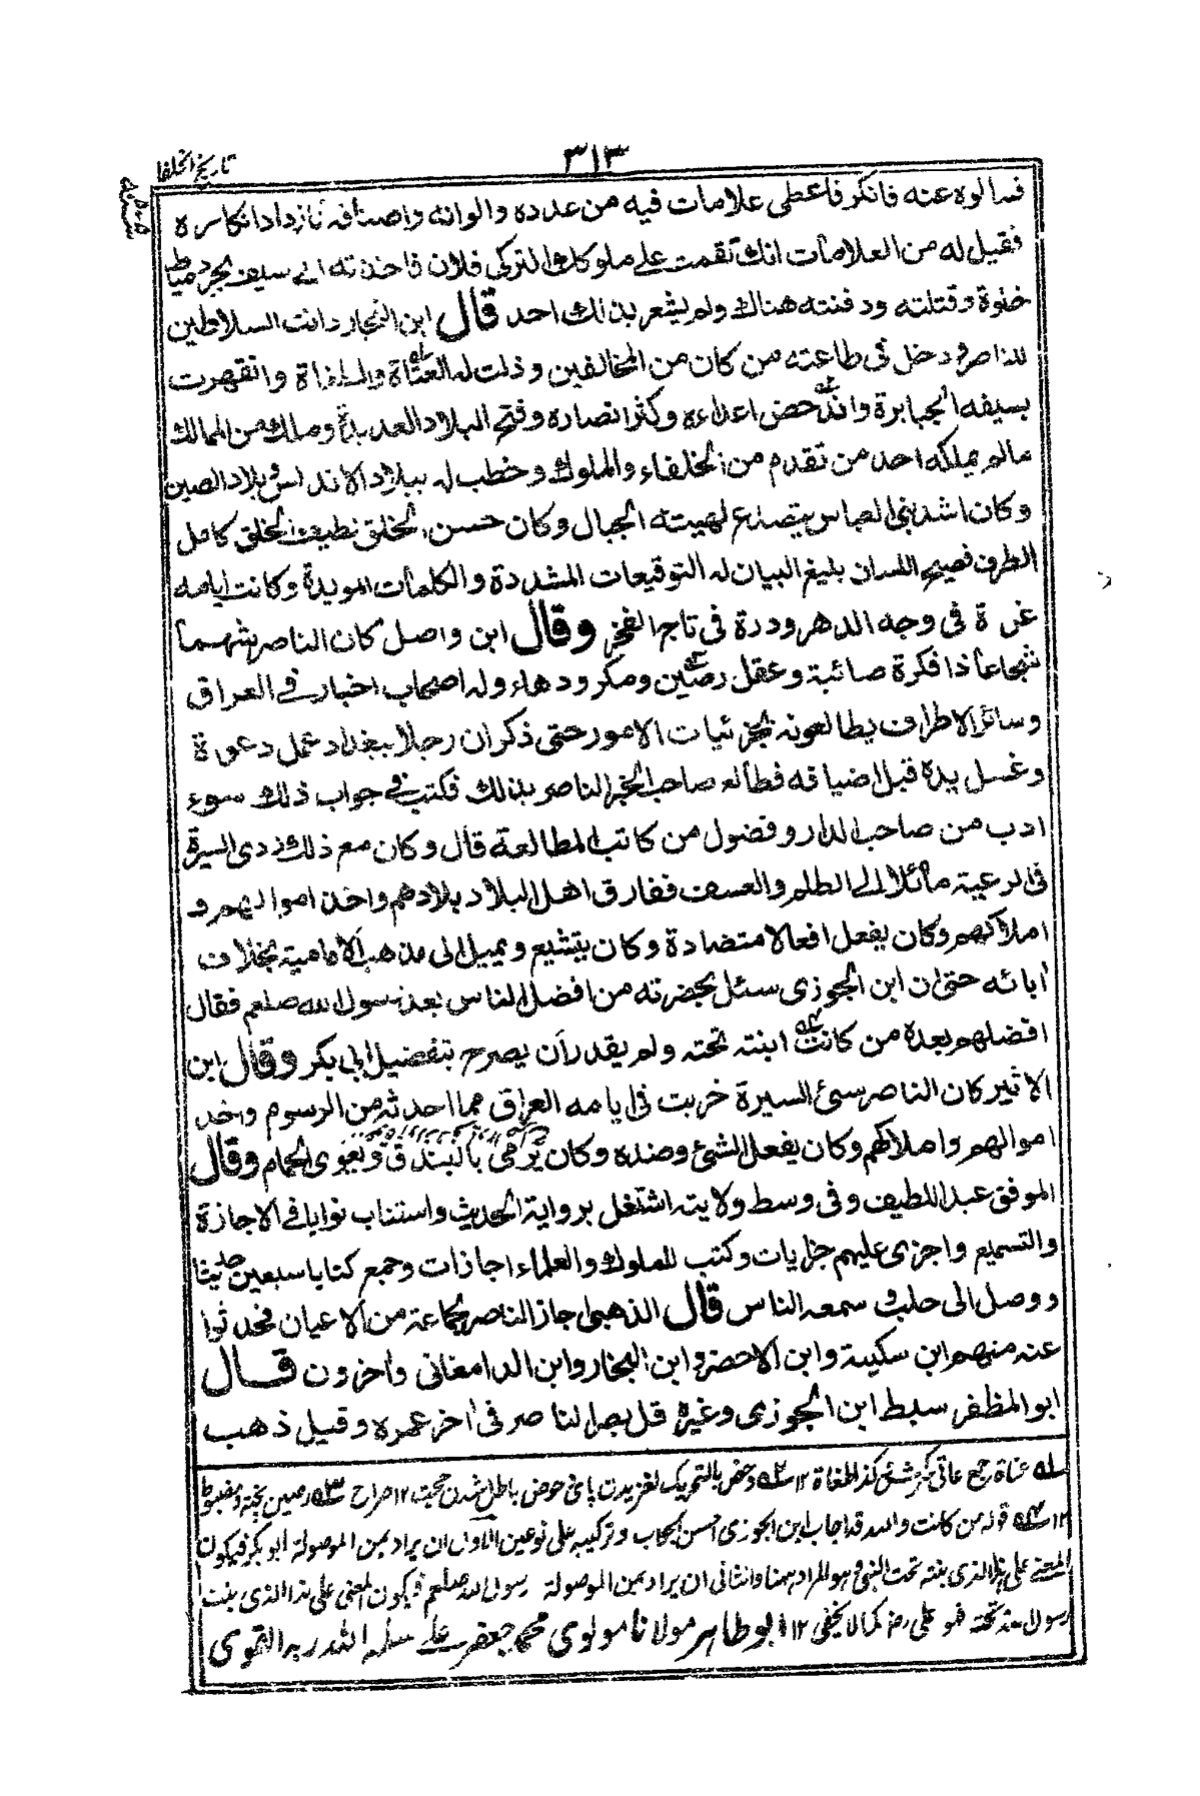 ٣١٣
تاريخ الخلفا
فسألوه عنه فانكر فاعطى علامات فيه من عدده والوانه واصنافه فازداد انكاره
فقيل له من العلامات انك نقمت على مملوكك التركى فلان فاخذته الى سيف بحر دمياط
خلوة وقتلته ودفنته هناك ولم يشعر بذلك احد قال ابن النجار دانت السلاطين
للناصر ودخل فى طاعته من كان من المخالفين وذلت له العتاة والطغاة وانقهرت
بسيفه الجبابرة واندحض اعداءه وكثر انصاره وفتح البلاد العديدة وملك من الممالك
مالم يملكه احد من تقدم من الخلفاء والملوك وخطب له ببلاد الاندلس وبلاد الصين
وكان اشد بنى العباس يتصدع لهيبته الجبال وكان حسن الخلق لطيف الخلق كامل
الظرف فصيح اللسان بليغ البيان له التوقيعات المشددة والكلمات المويدة وكانت ايامه
غرة فى وجه الدهر ودرة فى تاج الفخر وقال ابن واصل كان الناصر شهما
شجاعا ذا فكرة صائبة وعقل رصين ومكر ودهاء وله اصحاب اخبار فى العراق
وسائر الاطراف يطالعونه بجزئيات الامور حتى ذكر ان رجلا ببغداد عمل دعوة
وغسل يده قبل اضيافه فطالع صاحب الخبر الناصر بذلك فكتب فى جواب ذلك سوء
ادب من صاحب الدار وفضول من كاتب المطالعة قال وكان مع ذلك ردى السيرة
فى الرعية مائلا الى الظلم والعسف ففارق اهل البلاد بلادهم واخذ اموالهم و
املاكهم وكان يفعل افعالا متضادة وكان يتشيع ويميل الى مذهب الامامية بخلاف
ابائه حتى ان ابن الجوزى سئل بحضرته من افضل الناس بعد رسول الله صلعم فقال
افضلهم بعده من كانت ابنته تحته ولم يقدر أن يصرح بتفضيل ابى بكر وقال ابن
الاثير كان الناصر سئ السيرة خربت فى ايامه العراق مما احدثه من الرسوم واخذ
اموالهم واملاكهم وكان يفعل الشئ وضده وكان يرمى بالبندق ويغوى الحمام وقال
الموفق عبد اللطيف وفى وسط ولايته اشتغل برواية الحديث واستناب نوابا فى الاجازة
والتسميع واجرى عليهم جرايات وكتب للملوك والعلماء اجازات وجمع كتابا سبعين حديثا
ووصل الى حلب و سمعه الناس قال الذهبى اجاز الناصر لجماعة من الاعيان فحدثوا
عنه منهم ابن سكينة وابن الاخضر وابن النجار وابن الدامغانى واخرون قال
ابو المظفر سبط ابن الجوزى وغيره قل بصر الناصر فى اخر عمره وقيل ذهب
له عتاة جمع عاتى كذ الطغاة ١٢ ٢ه دحض بالتحريك لغزيدن پاى حوض باطل شدن حجت ١٢ صراح ٣ه رصين پخته ومضبوط
١٢ ٤ه قوله من كانت والله قد اجاب ابن الجوزى احسن الجواب وتركيبه على نوعين الاول ان يراد بمن الموصولة ابو بكر فيكون
المعنى على هذا الذى بنته تحت النبى وهو المراد ههنا والثانى ان يراد بمن الموصولة رسول الله صلعم فيكون المعنى على هذا الذى بنت
رسول الله تحته فهو على رض كما لا يخفى ١٢ ابو طاهر مولانا مولوى محمد جعفر على سلمه الله ربه القوى